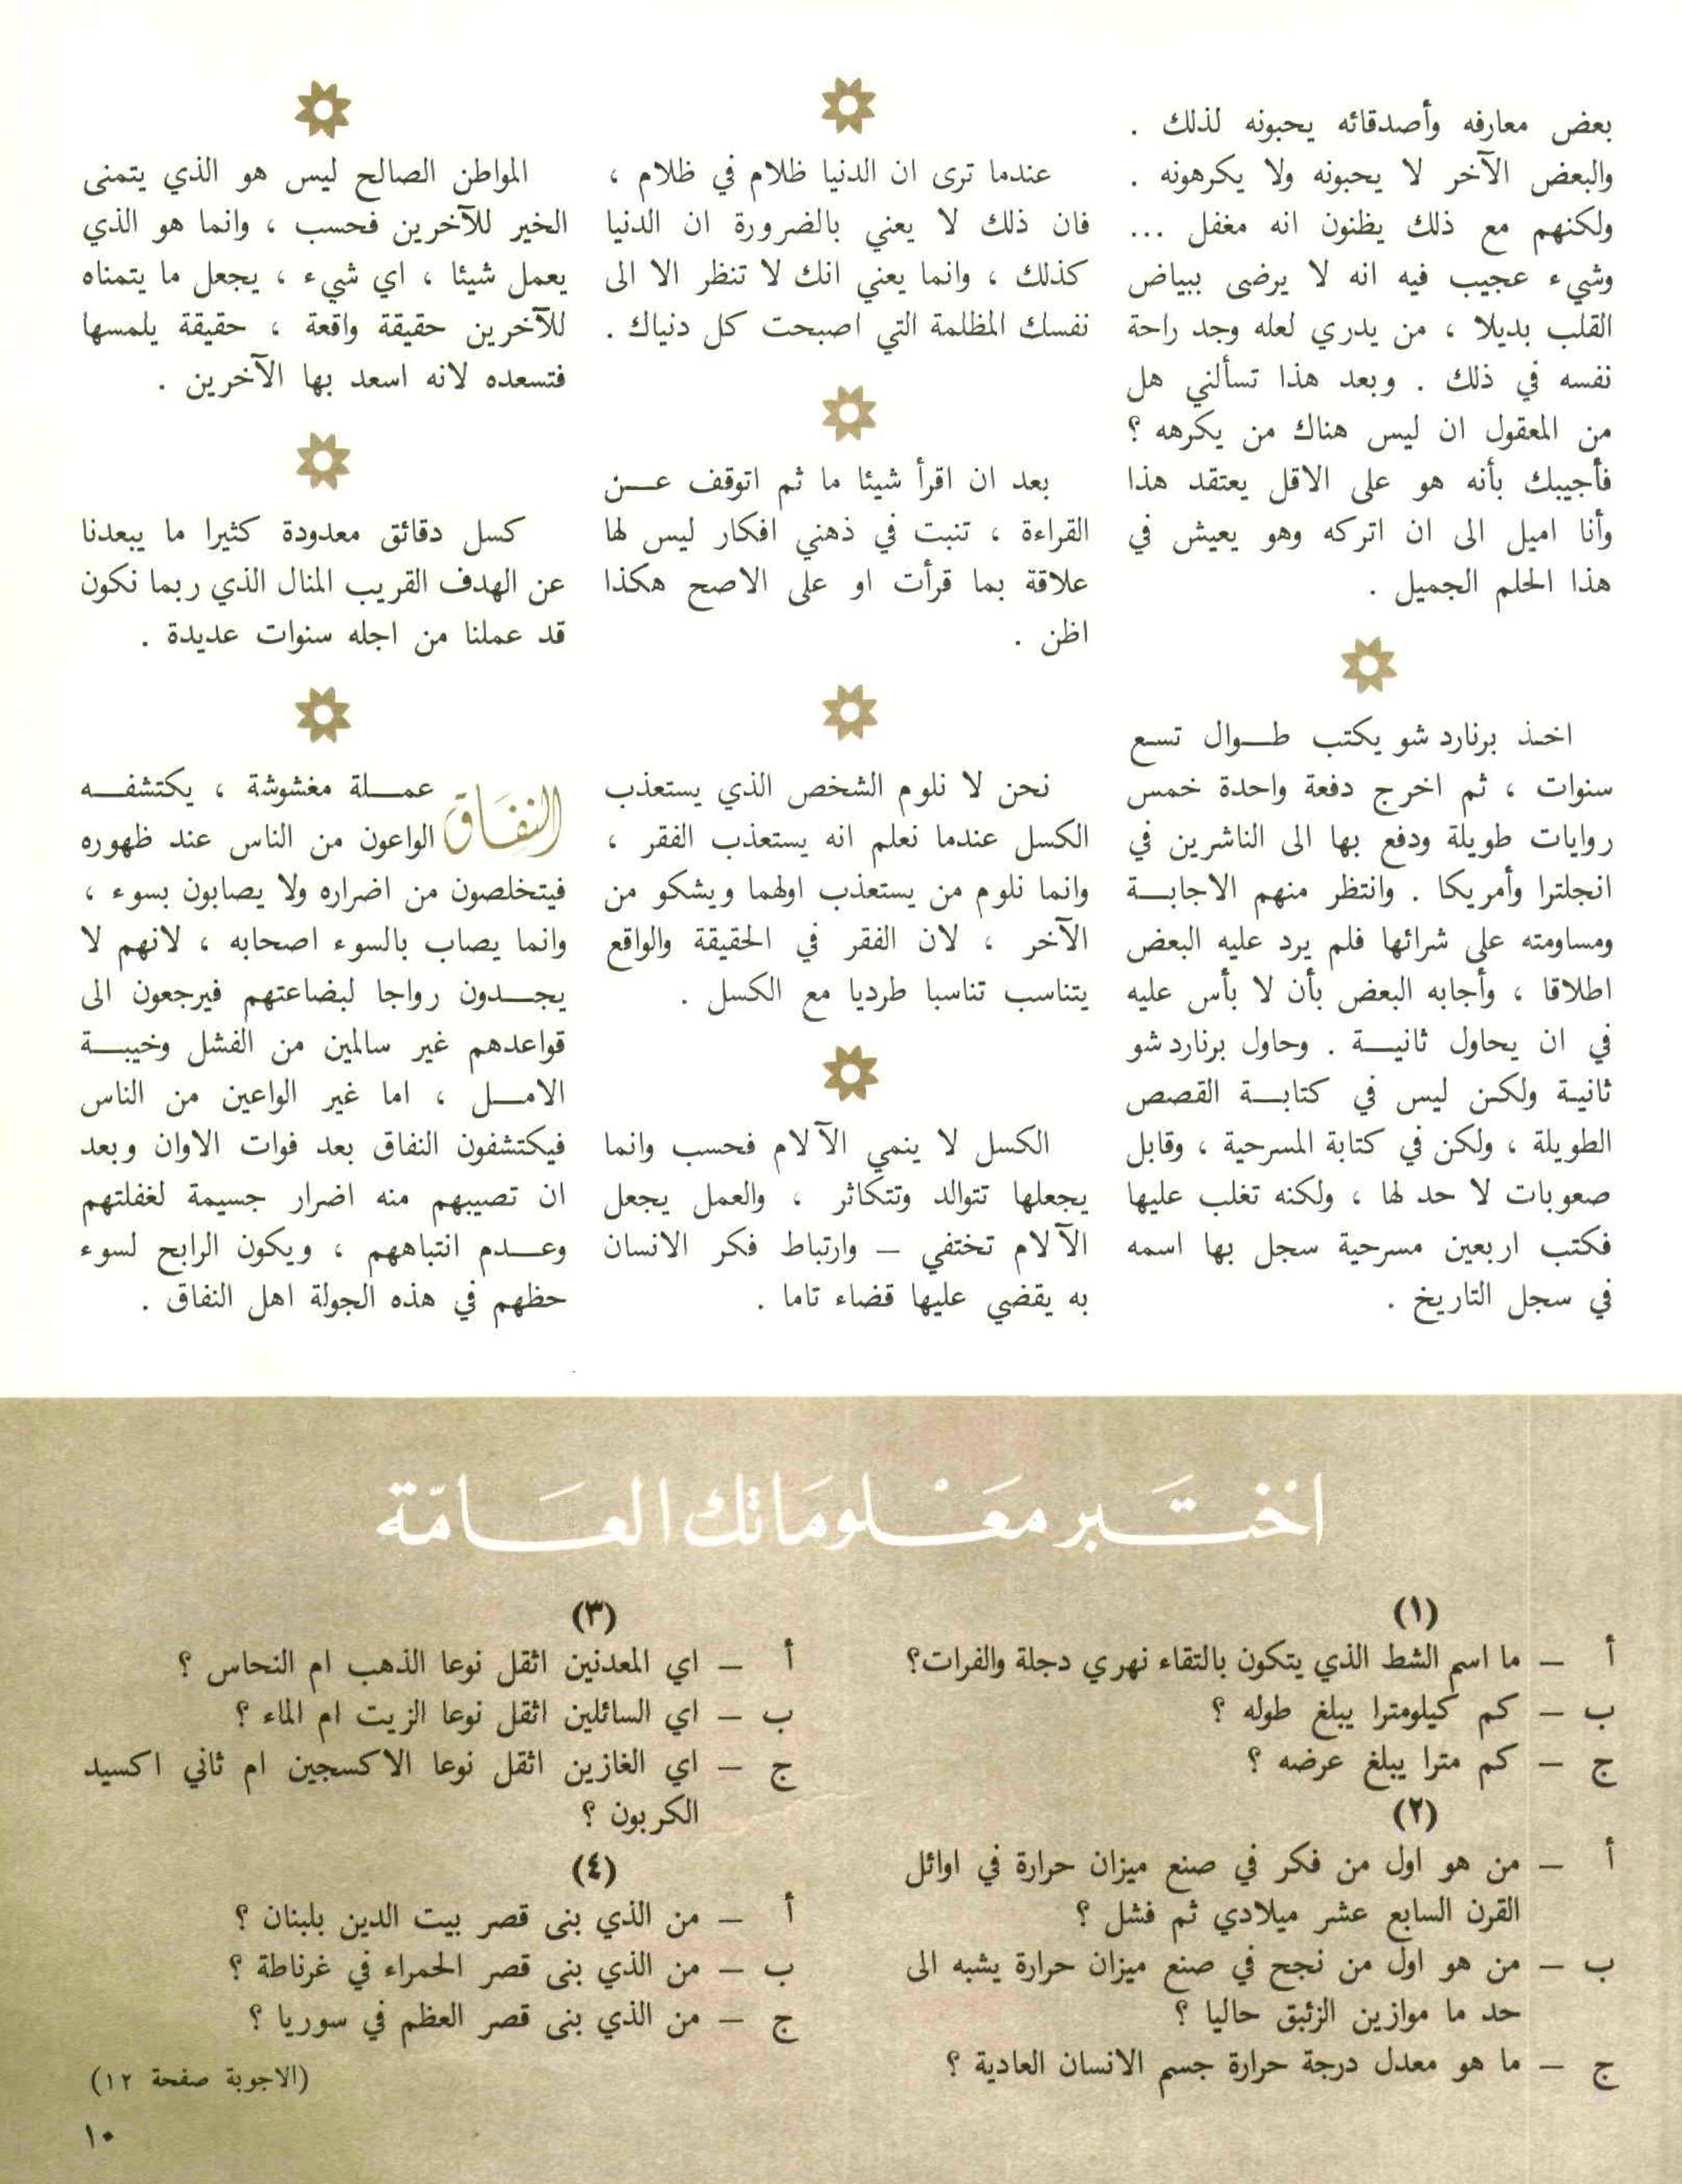 بعض معارفه وأصدقائه يحبونه لذلك .
والبعض الآخر لا يحبونه ولا يكرهونه .
ولكنهم مع ذلك يظنون انه مغفل ...
وشيء عجيب فيه انه لا يرضى ببياض
القلب بديلا ، من يدري لعله وجد راحة
نفسه في ذلك . وبعد هذا تسألني هل
من المعقول ان ليس هناك من يكرهه ؟
فأجيبك بأنه هو على الاقل يعتقد هذا
وأنا اميل الى ان اتركه وهو يعيش في
هذا الحلم الجميل .
اخذ برنارد شو يكتب طوال تسع
سنوات ، ثم اخرج دفعة واحدة خمس
روايات طويلة ودفع بها الى الناشرين في
انجلترا وأمريكا . وانتظر منهم الاجابة
ومساومته على شرائها فلم يرد عليه البعض
اطلاقا ، وأجابه البعض بأن لا بأس عليه
في ان يحاول ثانية . وحاول برنارد شو
ثانية ولكن ليس في كتابة القصص
الطويلة ، ولكن في كتابة المسرحية ، وقابل
صعوبات لا حد لها ، ولكنه تغلب عليها
فكتب اربعين مسرحية سجل بها اسمه
في سجل التاريخ .
عندما ترى ان الدنيا ظلام في ظلام ،
فان ذلك لا يعني بالضرورة ان الدنيا
كذلك ، وانما يعني انك لا تنظر الا الى
نفسك المظلمة التي اصبحت كل دنياك .
بعد ان اقرأ شيئا ما ثم اتوقف عن
القراءة ، تنبت في ذهني افكار ليس لها
علاقة بما قرأت او على الاصح هكذا
اظن .
نحن لا نلوم الشخص الذي يستعذب
الكسل عندما نعلم انه يستعذب الفقر ،
وانما نلوم من يستعذب اولهما ويشكو من
الآخر ، لان الفقر في الحقيقة والواقع
يتناسب تناسبا طرديا مع الكسل .
الكسل لا ينمي الآلام فحسب وانما
يجعلها تتوالد وتتكاثر ، والعمل يجعل
الآلام تختفي – وارتباط فكر الانسان
به يقضي عليها قضاء تاما .
المواطن الصالح ليس هو الذي يتمنى
الخير للآخرين فحسب ، وانما هو الذي
يعمل شيئا ، اي شيء ، يجعل ما يتمناه
للآخرين حقيقة واقعة ، حقيقة يلمسها
فتسعده لانه اسعد بها الآخرين .
كسل دقائق معدودة كثيرا ما يبعدنا
عن الهدف القريب المنال الذي ربما نكون
قد عملنا من اجله سنوات عديدة .
النفَاق عملة مغشوشة ، يكتشفه
الواعون من الناس عند ظهوره
فيتخلصون من اضراره ولا يصابون بسوء ،
وانما يصاب بالسوء اصحابه ، لانهم لا
يجدون رواجا لبضاعتهم فيرجعون الى
قواعدهم غير سالمين من الفشل وخيبة
الامل ، اما غير الواعين من الناس
فيكتشفون النفاق بعد فوات الاوان وبعد
ان تصيبهم منه اضرار جسيمة لغفلتهم
وعدم انتباههم ، ويكون الرابح لسوء
حظهم في هذه الجولة اهل النفاق .
اخْتَبر معَْلومَاتك العَامّة
(١)
أ – ما اسم الشط الذي يتكون بالتقاء نهري دجلة والفرات؟
ب – كم كيلومترا يبلغ طوله ؟
ج – كم مترا يبلغ عرضه ؟
(٢)
أ – من هو اول من فكر في صنع ميزان حرارة في اوائل
القرن السابع عشر ميلادي ثم فشل ؟
ب – من هو اول من نجح في صنع ميزان حرارة يشبه الى
حد ما موازين الزئبق حاليا ؟
ج – ما هو معدل درجة حرارة جسم الانسان العادية ؟
(٣)
أ – اي المعدنين اثقل نوعا الذهب ام النحاس ؟
ب – اي السائلين اثقل نوعا الزيت ام الماء ؟
ج – اي الغازين اثقل نوعا الاكسجين ام ثاني اكسيد
الكربون ؟
(٤)
أ – من الذي بنى قصر بيت الدين بلبنان ؟
ب – من الذي بنى قصر الحمراء في غرناطة ؟
ج – من الذي بنى قصر العظم في سوريا ؟
(الاجوبة صفحة ١٢)
١٠